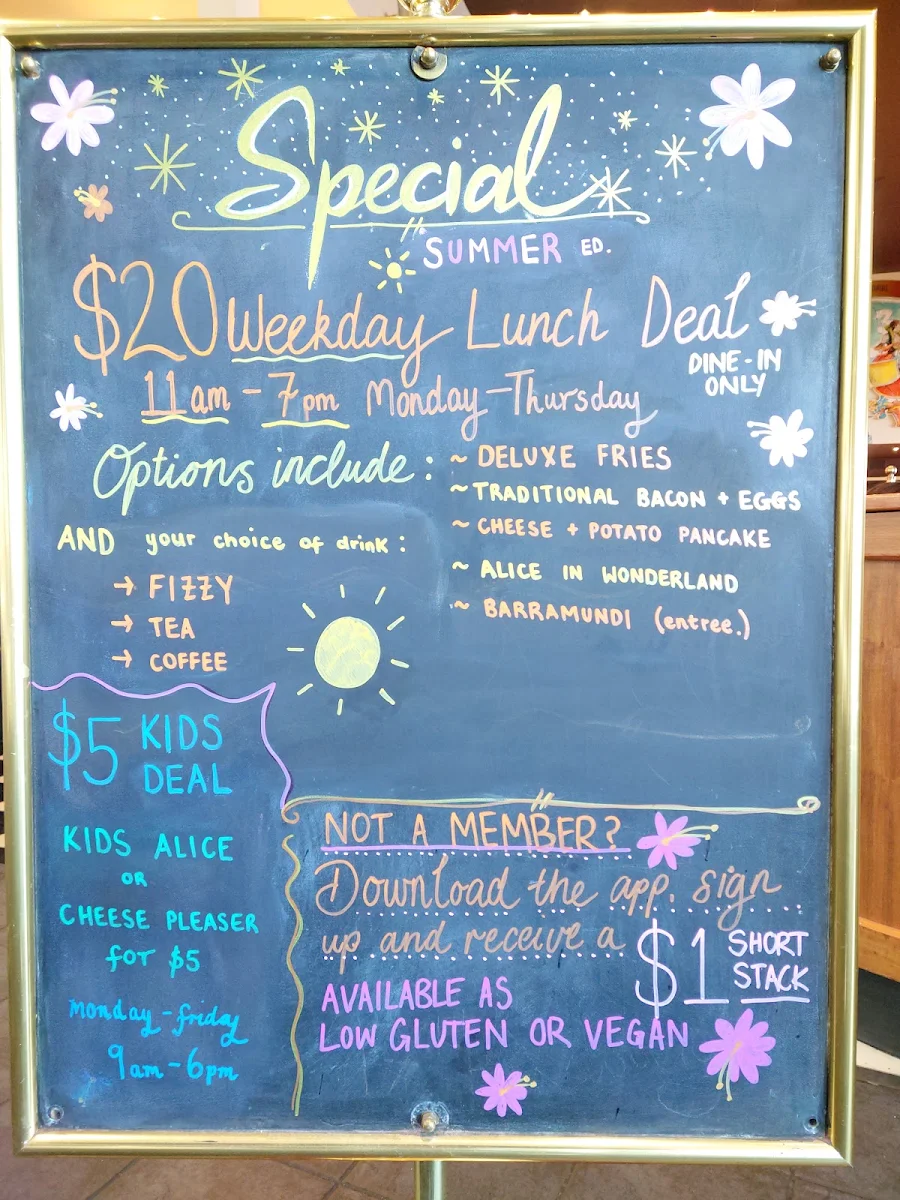 Special
SUMMER ED.
$20 Weekday Lunch Deal
DINE-IN
ONLY
11am - 7pm Monday-Thursday
Options include:
~ DELUXE FRIES
~ TRADITIONAL BACON + EGGS
~ CHEESE + POTATO PANCAKE
~ ALICE IN WONDERLAND
~ BARRAMUNDI (entree.)
AND your choice of drink:
→ FIZZY
→ TEA
→ COFFEE
$5 KIDS
DEAL
KIDS ALICE
OR
CHEESE PLEASER
for $5
monday-friday
9am-6pm
NOT A MEMBER?
Download the app, sign
up and receive a $1 SHORT
STACK
AVAILABLE AS
LOW GLUTEN OR VEGAN